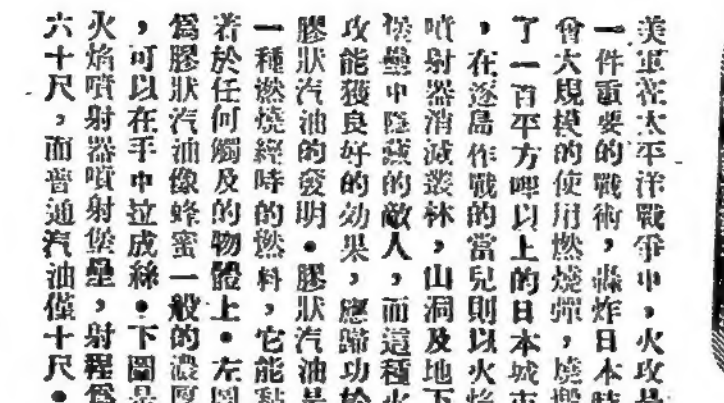 美軍在太平洋戰爭中，火攻是
一件重要的戰術，轟炸日本時
會大規模的使用燃燒彈，燒燬
了一百平方哩以上的日本城市
，在逐島作戰的當兒則以火焰
噴射器消滅叢林，山洞及地下
堡壘中隱藏的敵人，而這種火
攻能獲良好的効果，應歸功於
膠狀汽油的發明。膠狀汽油是
一種燃燒經時的燃料，它能黏
着於任何觸及的物體上。左圖
爲膠狀汽油像蜂蜜一般的濃厚
，可以在手中拉成絲。下圖是
火焰噴射器噴射堡壘，射程爲
六十尺，而普通汽油僅十尺。